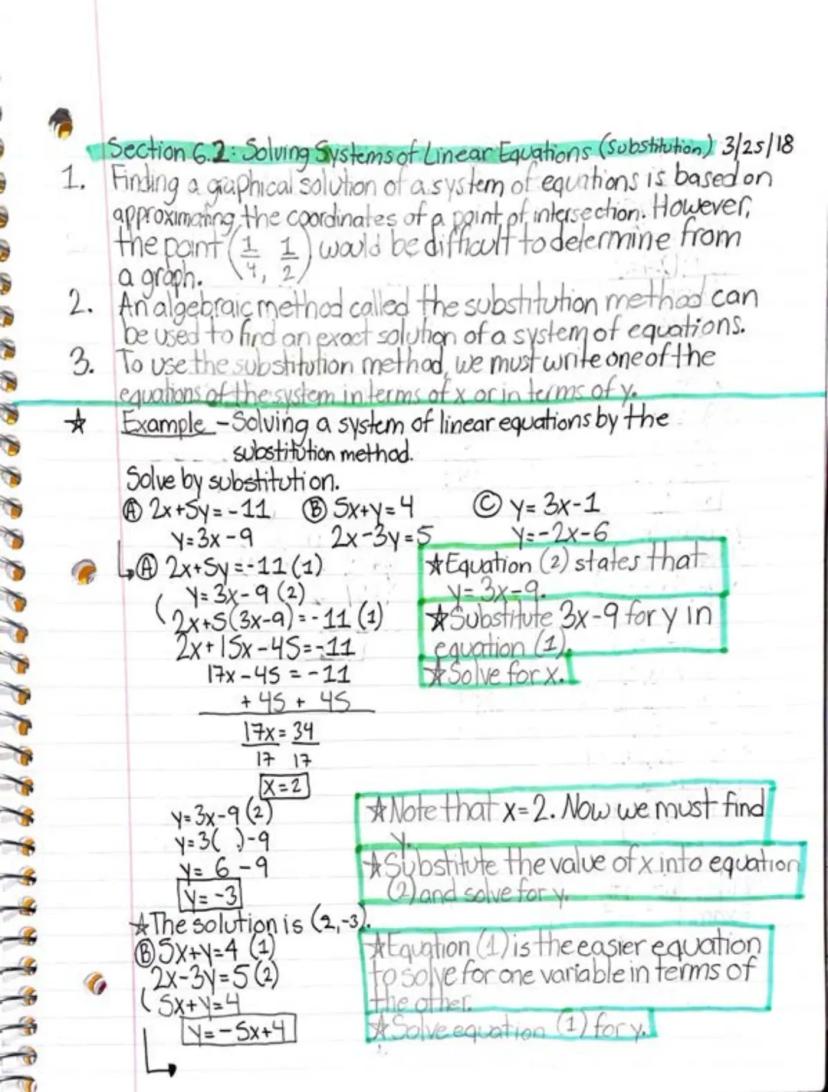 Section 6.2: Solving Systems of Linear Equations (Substitution) 3/25/18
1. Finding a graphical solution of a system of equations is based on
approximating the coordinates of a point of intersection. However,
the point (1/4, 1/2) would be difficult to determine from
a graph.
2. An algebraic method called the substitution method can
be used to find an exact solution of a system of equations.
3. To use the substitution method, we must write one of the
equations of the system in terms of x or in terms of y.
★ Example - Solving a system of linear equations by the
substitution method.
Solve by substitution.
Ⓐ 2x+5y=-11 Ⓑ 5x+y=4 Ⓒ y=3x-1
y=3x-9 2x-3y=5 y=-2x-6
↳Ⓐ 2x+5y=-11 (1)
y=3x-9 (2)
(2x+5(3x-9)=-11 (1)
2x+15x-45=-11
17x-45=-11
+45 + 45
17x=34
17 17
x=2
★Equation (2) states that
y=3x-9.
★Substitute 3x-9 for y in
equation (1).
★Solve for x.
y=3x-9 (2)
y=3( )-9
y=6-9
y=-3
★Note that x=2. Now we must find
y.
★Substitute the value of x into equation
(2) and solve for y.
★The solution is (2,-3).
Ⓑ 5x+y=4 (1)
2x-3y=5 (2)
(5x+y=4
y=-5x+4
★Equation (1) is the easier equation
to solve for one variable in terms of
the other.
★Solve equation (1) for y.